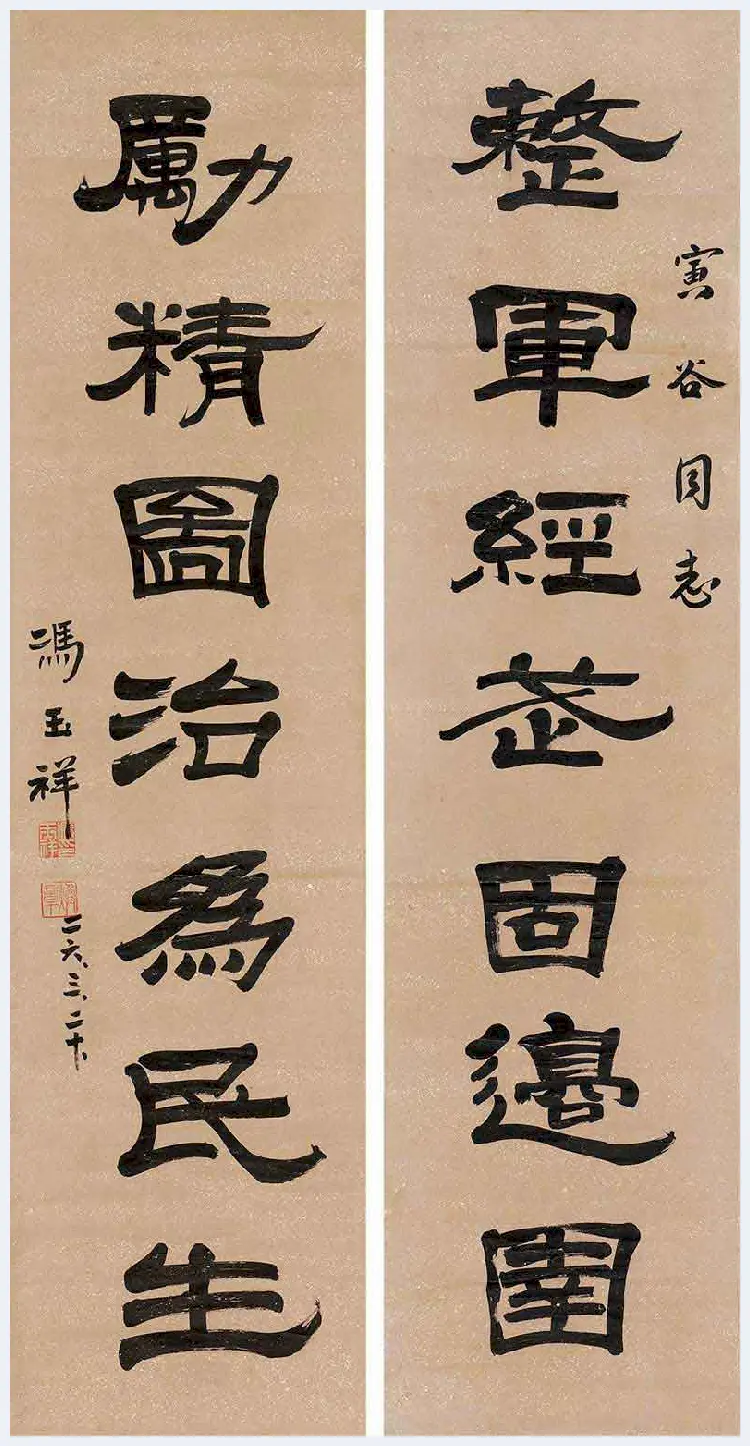 寅谷同志
整軍經武固邊圉
勵精圖治為民生
馮玉祥
二六、三、二十、